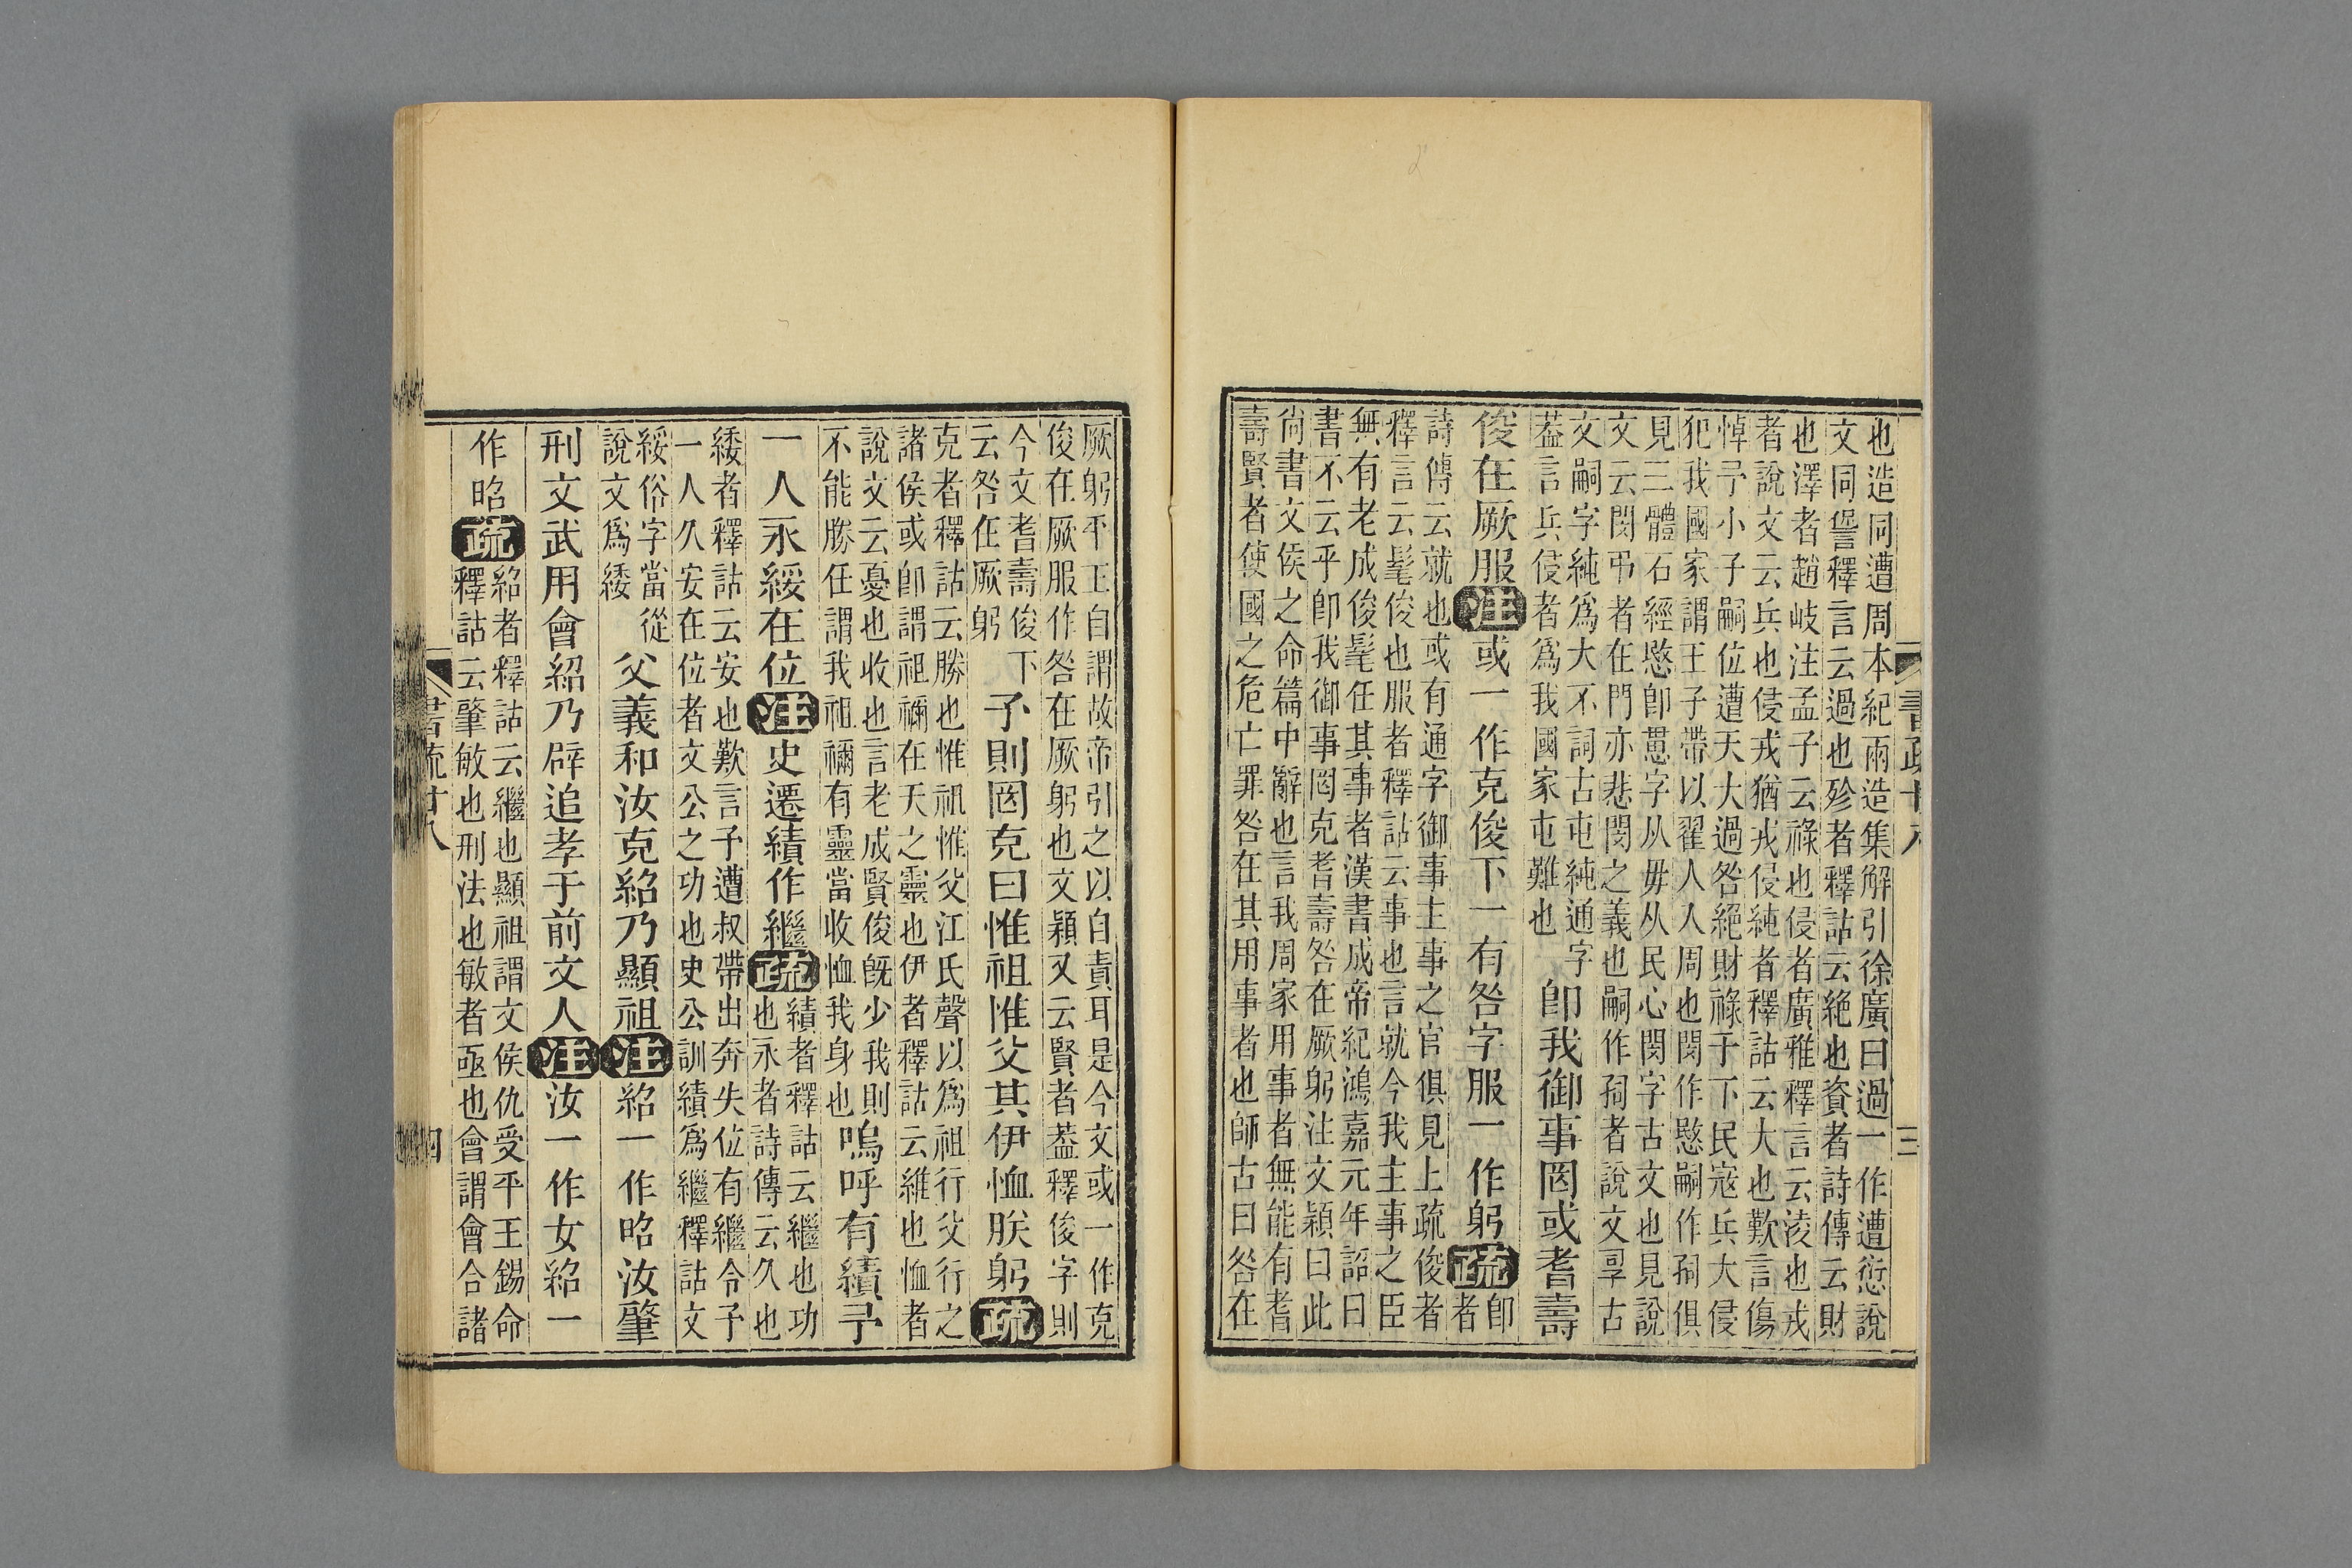 也造同遭周本紀雨造集解引徐廣曰過一作遭愆說
文同諐釋言云過也殄者釋詁云絕也資者詩傳云財
也澤者趙岐注孟子云祿也侵者廣雅釋言云淩也戎
者說文云兵也侵戎猶戎侵純者釋詁云大也歎言傷
悼予小子嗣位遭天大過咎絕財祿于下民寇兵大侵
犯我國家謂王子帶以翟人人周也閔作愍嗣作孠俱
見三體石經愍卽𢛳字从毋从民心閔字古文也見說
文云閔弔者在門亦悲閔之義也嗣作孠者說文𡥈古
文嗣字純爲大不詞古屯純通字
葢言兵侵者爲我國家屯難也
卽我御事罔或耆壽
俊在厥服注或一作克俊下一有咎字服一作躬疏
卽
者
詩傳云就也或有通字御事主事之官俱見上疏俊者
釋言云髦俊也服者釋詁云事也言就今我主事之臣
無有老成俊髦任其事者漢書成帝紀鴻嘉元年詔曰
書不云乎卽我御事罔克耆壽咎在厥躬注文穎曰此
尙書文侯之命篇中辭也言我周家用事者無能有耆
壽賢者使國之危亡罪咎在其用事者也師古曰咎在
書疏廿八 三
厥躬平王自謂故帝引之以自責耳是今文或一作克
俊在厥服作咎在厥躬也文穎又云賢者葢釋俊字則
今文耆壽俊下
云咎在厥躬
予則罔克曰惟祖惟父其伊恤朕躬疏
克者釋詁云勝也惟祖惟父江氏聲以爲祖行父行之
諸侯或卽謂祖禰在天之靈也伊者釋詁云維也恤者
說文云憂也收也言老成賢俊旣少我則
不能勝任謂我祖禰有靈當收恤我身也
嗚呼有績予
一人永綏在位注史遷績作繼疏
績者釋詁云繼也功
也永者詩傳云久也
綏者釋詁云安也歎言予遭叔帶出奔失位有繼令予
一人久安在位者文公之功也史公訓績爲繼釋詁文
綏俗字當從
說文爲緌
父義和汝克紹乃顯祖注紹一作昭汝肇
刑文武用會紹乃辟追孝于前文人注汝一作女紹一
作昭疏
紹者釋詁云繼也顯祖謂文侯仇受平王錫命
釋詁云肇敏也刑法也敏者亟也會謂會合諸
書疏廿八 四